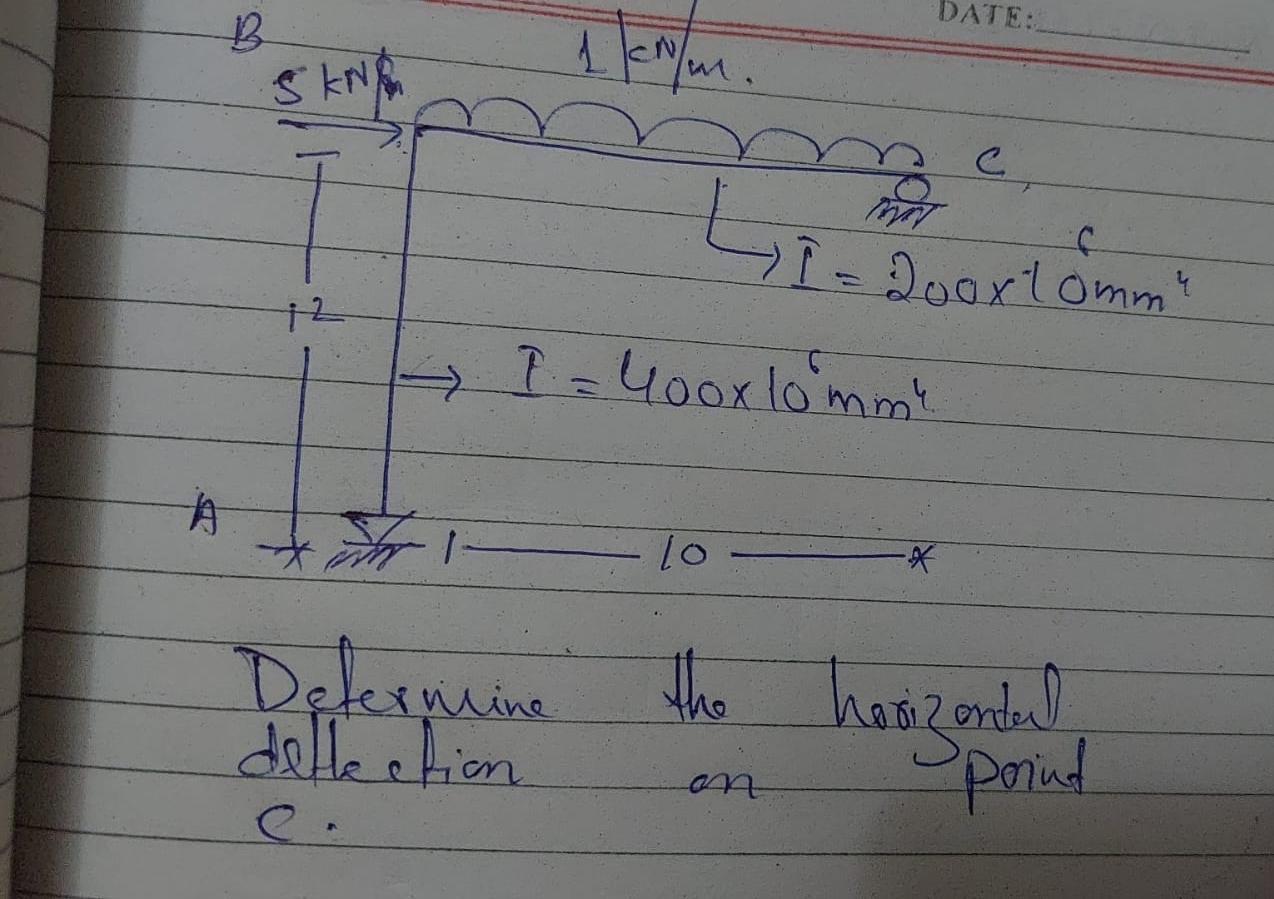 DATE:
B
1 kN/m.
5 kN
C
I = 200x10⁶mm⁴
12
I = 400x10⁶mm⁴
A
10
Determine the horizontal
deflection on point
C.